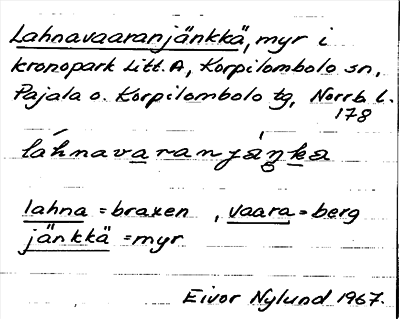 Lahnavaaranjänkkä, myr i
kronopark Litt. A, Korpilombolo sn,
Pajala o. Korpilombolo tg, Norrb. l.
178
láhnavaranjáŋka
lahna = braxen , vaara = berg
jänkkä = myr
Eivor Nylund 1967.